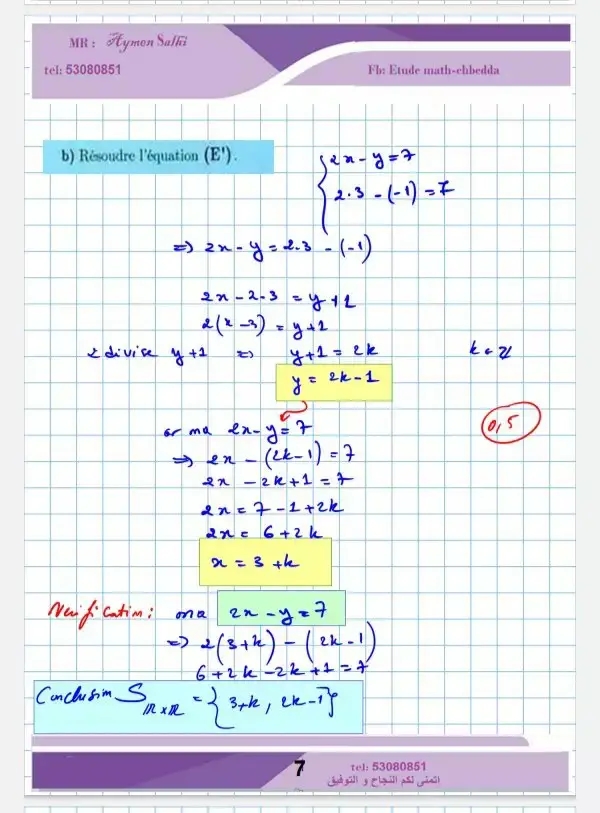 MR : Aymen Salhi
tel: 53080851
Fb: Etude math-chbedda
b) Résoudre l'équation (E').
2x - y = 7
2.3 - (-1) = 7
=> 2x - y = 2.3 - (-1)
2x - 2.3 = y + 1
2(x - 3) = y + 1
2 divise y + 1 => y + 1 = 2k k ∈ Z
y = 2k - 1
or on a 2x - y = 7
0,5
=> 2x - (2k - 1) = 7
2x - 2k + 1 = 7
2x = 7 - 1 + 2k
2x = 6 + 2k
x = 3 + k
Verification : on a 2x - y = 7
=> 2(3+k) - (2k - 1)
6 + 2k - 2k + 1 = 7
Conclusion S IR x IR = { 3+k , 2k-1 }
7
tel: 53080851
اتمنى لكم النجاح و التوفيق